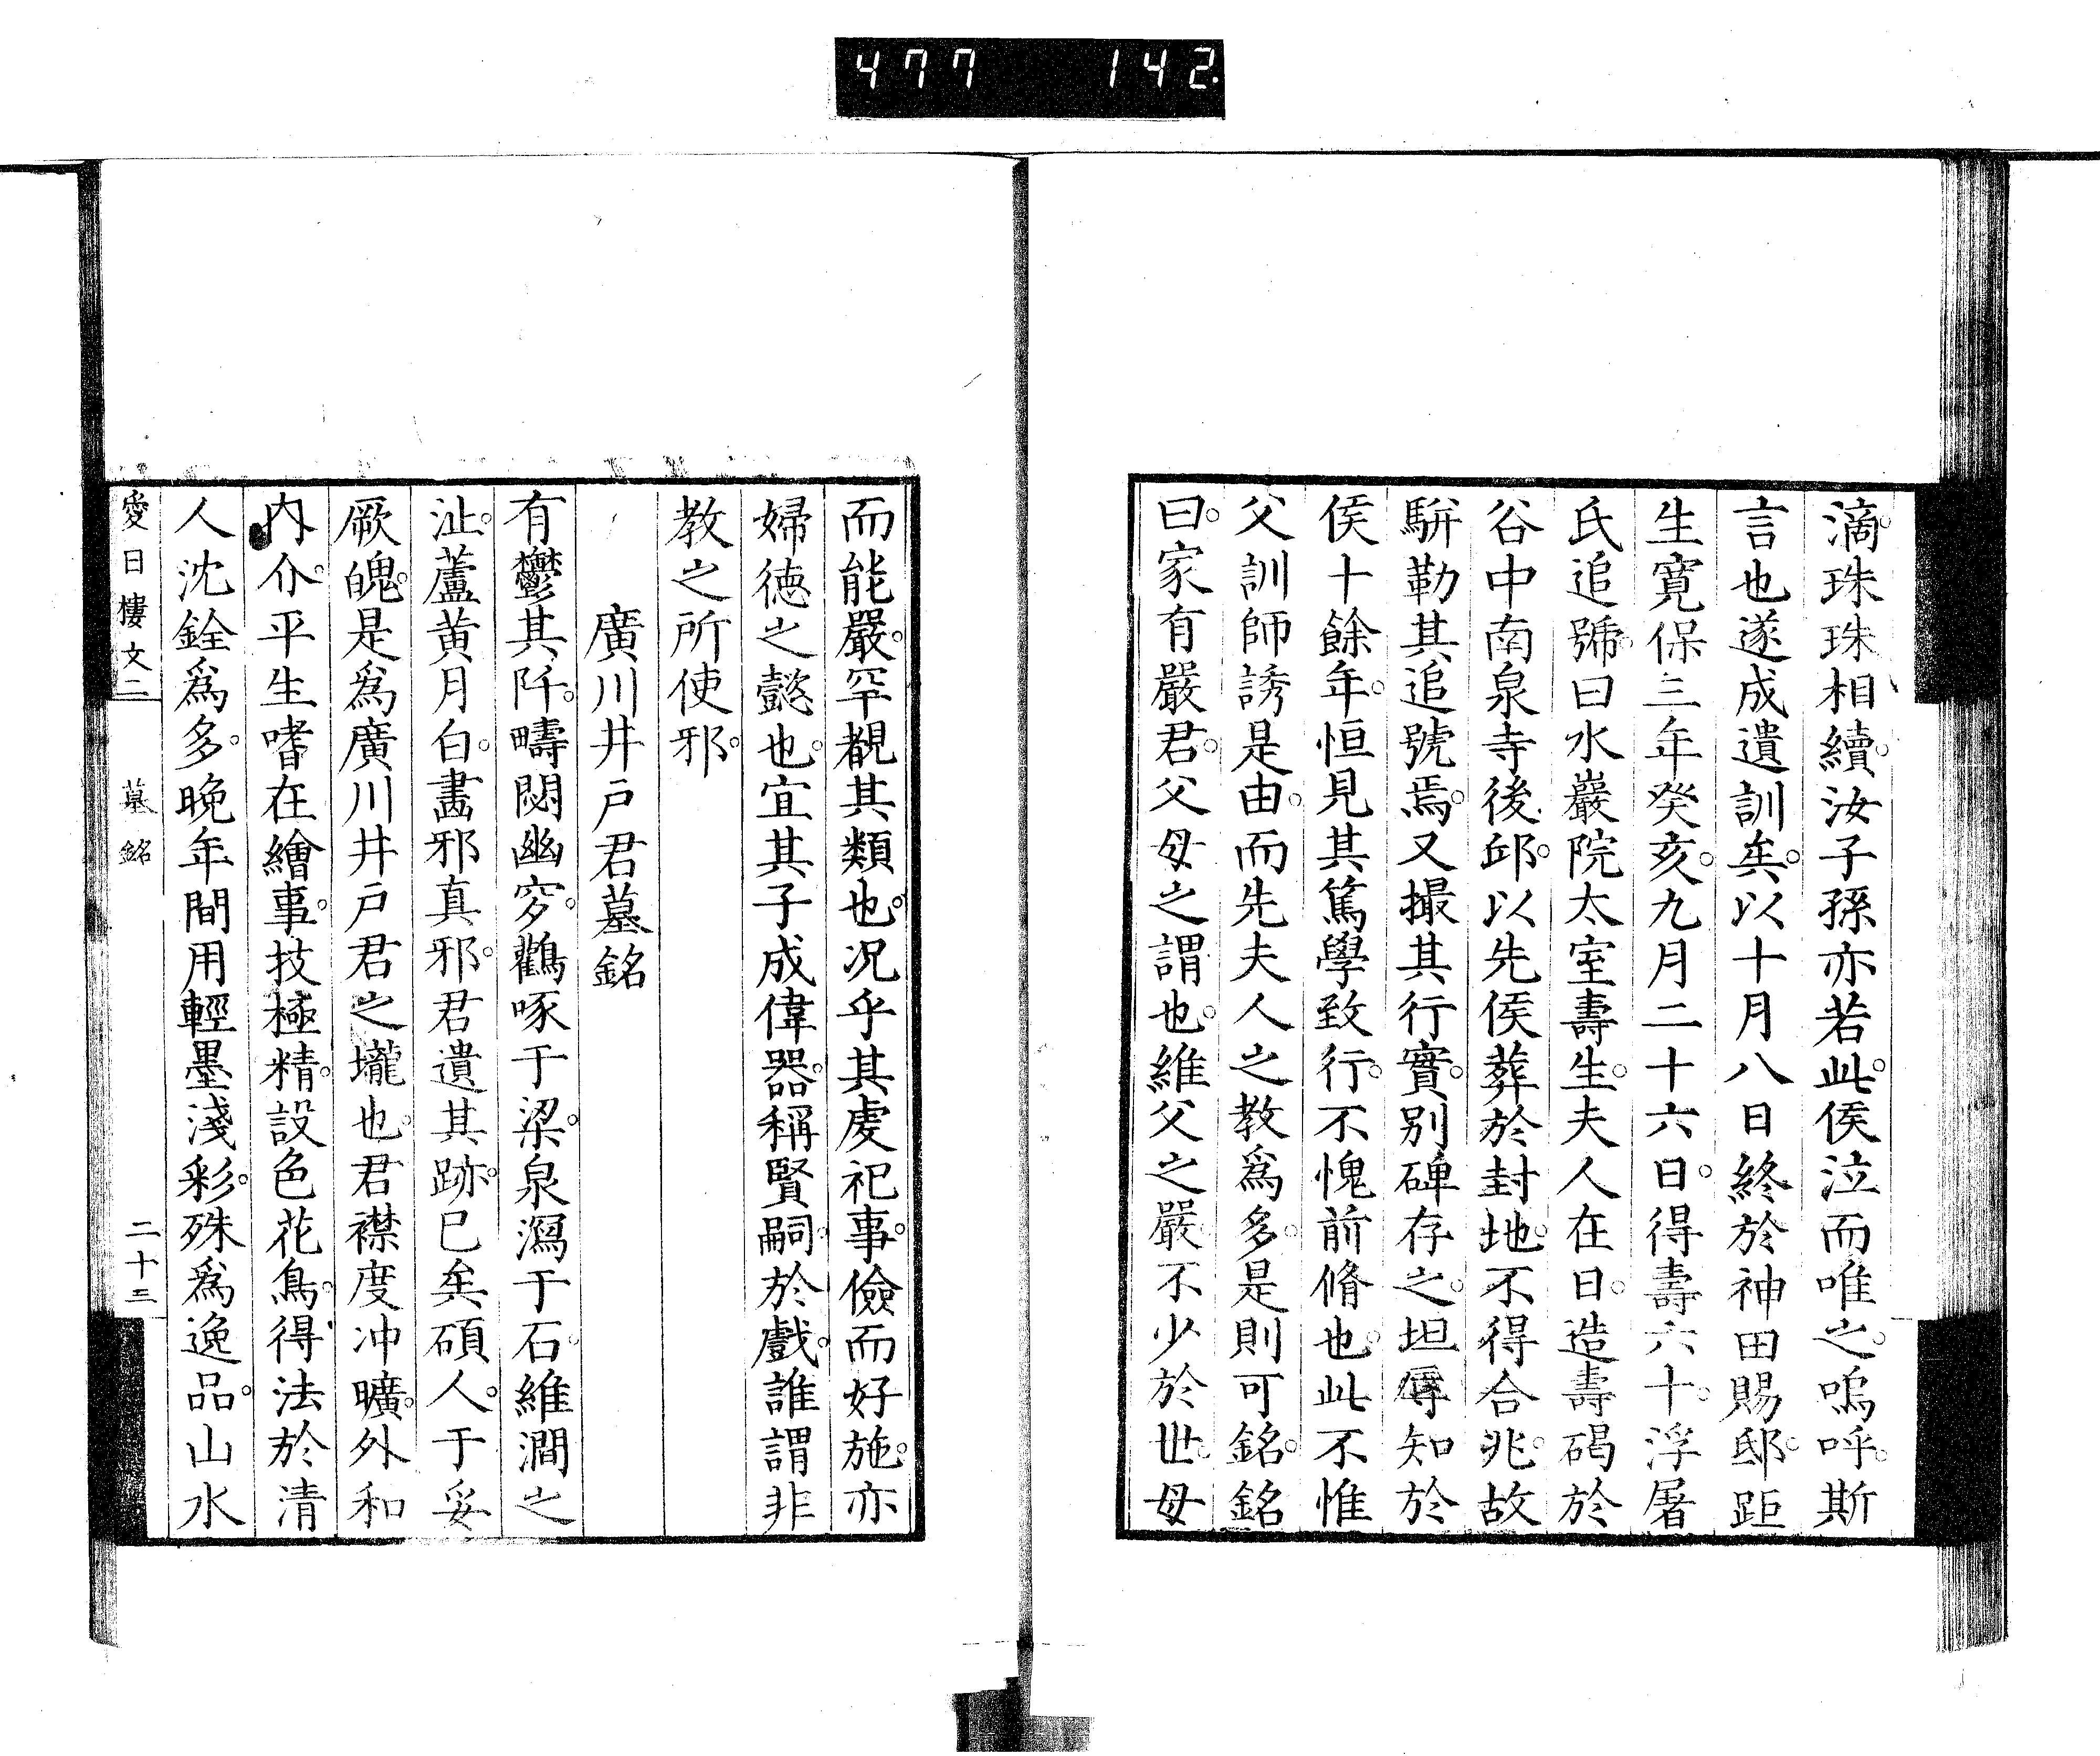 477 142
滴珠珠相續汝子孫亦若此侯泣而唯之嗚呼斯
言也遂成遺訓矣以十月八日終於神田賜邸距
生寛保三年癸亥九月二十六日得壽六十浮屠
氏追號曰水巖院太室壽生夫人在日造壽碣於
谷中南泉寺後邱以先侯葬於封地不得合兆故
駢勒其追號焉又撮其行實別碑存之坦辱知於
侯十餘年恒見其篤學致行不愧前脩也此不惟
父訓師誘是由而先夫人之教爲多是則可銘銘
曰家有嚴君父母之謂也維父之嚴不少於世母
而能嚴罕覩其類也況乎其虔祀事儉而好施亦
婦徳之懿也宜其子成偉器稱賢嗣於戲誰謂非
教之所使邪
廣川井戸君墓銘
有鬱其阡疇閟幽穸鸛啄于梁泉瀉于石維澗之
沚蘆黄月白畵邪真邪君遺其跡已矣碩人于妥
厥魄是爲廣川井戸君之壠也君襟度冲曠外和
内介平生嗜在繪事技極精設色花鳥得法於清
人沈銓爲多晩年間用輕墨淺彩殊爲逸品山水
愛日樓文二 墓銘 二十三